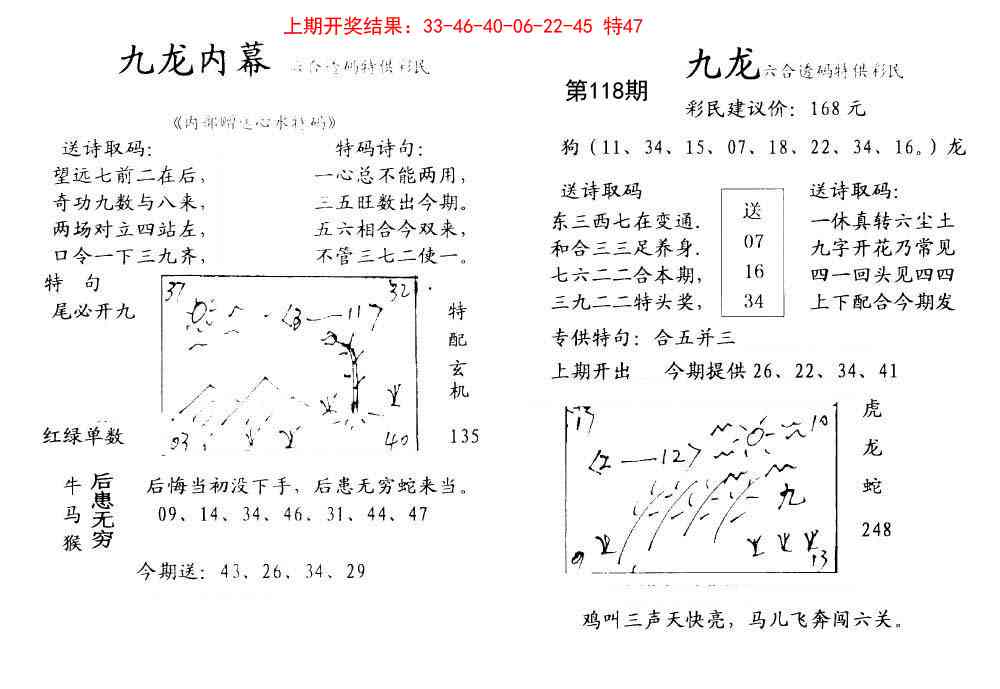 上期开奖结果：33-46-40-06-22-45 特47
九龙内幕 六合透码特供彩民
《内部赠送心水特码》
送诗取码：
望远七前二在后，
奇功九数与八来，
两场对立四站左，
口令一下三九齐，
特码诗句：
一心总不能两用，
三五旺数出今期。
五六相合今双来，
不管三七二使一。
特 句
尾必开九
红绿单数
37
32
〈3—11〉
03
40
特
配
玄
机
135
牛
马
猴
后患无穷
后悔当初没下手，后患无穷蛇来当。
09、14、34、46、31、44、47
今期送：43、26、34、29
九龙 六合透码特供彩民
第118期
彩民建议价：168元
狗（11、34、15、07、18、22、34、16。）龙
送诗取码
东三西七在变通．
和合三三足养身．
七六二二合本期，
三九二二特头奖，
送
07
16
34
送诗取码：
一休真转六尘土
九字开花乃常见
四一回头见四四
上下配合今期发
专供特句：合五并三
上期开出 今期提供26、22、34、41
10
—12〉
九
13
虎
龙
蛇
248
鸡叫三声天快亮，马儿飞奔闯六关。